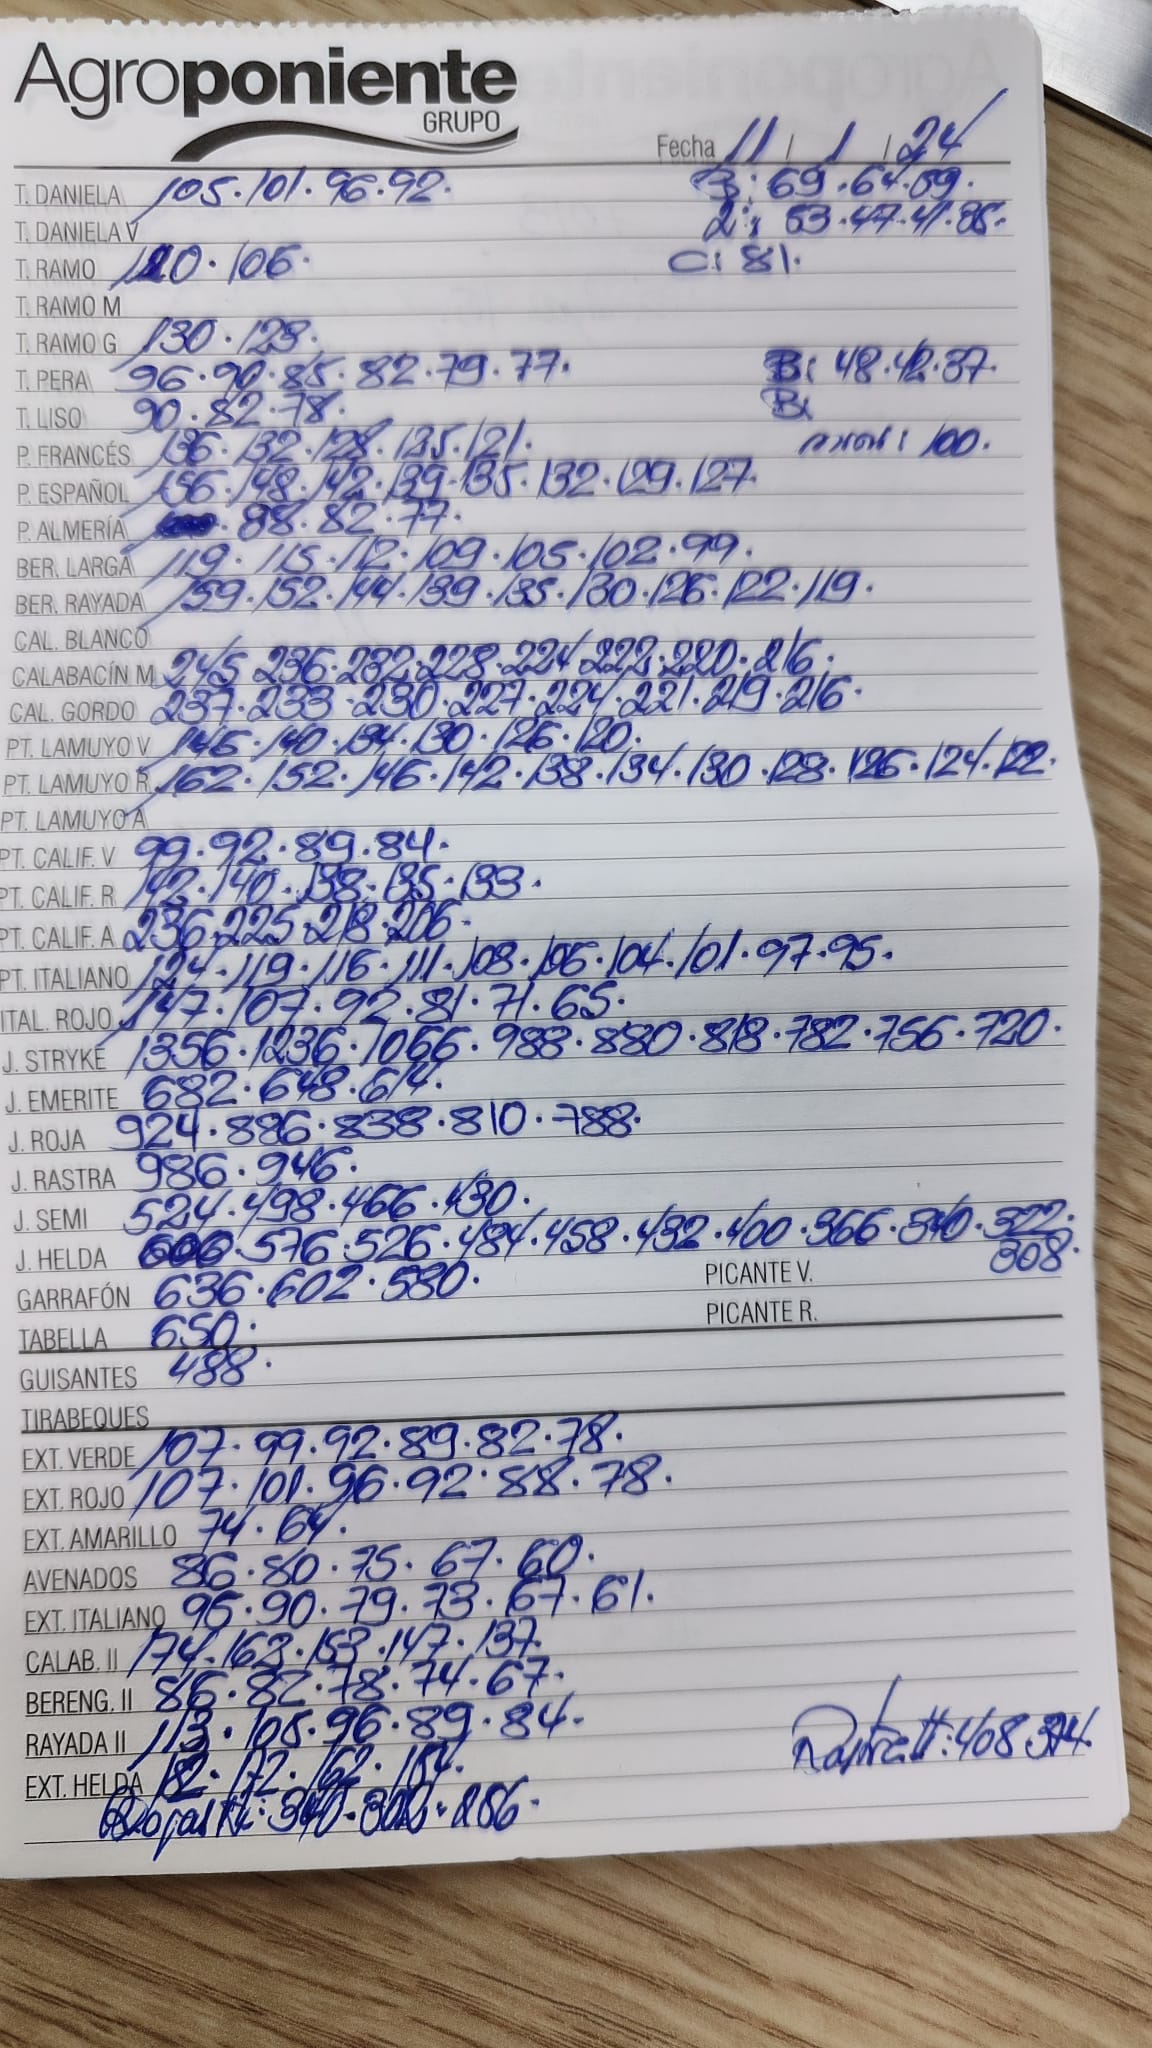 Agroponiente
GRUPO
Fecha 11 / 1 / 24
T. DANIELA 105.101.96.92. B: 69.64.59.
T. DANIELA V 2: 53.47.41.35.
T. RAMO 120.106. C: 81.
T. RAMO M
T. RAMO G 130.128.
T. PERA 96.90.85.82.79.77. B: 48.42.37.
T. LISO 90.82.78. B:
P. FRANCÉS 136.132.128.125.121. mini: 100.
P. ESPAÑOL 156.148.142.139.135.132.129.127.
P. ALMERÍA .88.82.77.
BER. LARGA 119.115.112.109.105.102.99.
BER. RAYADA 159.152.144.139.135.130.126.122.119.
CAL. BLANCO
CALABACÍN M 245.236.232.228.224.222.220.216.
CAL. GORDO 237.233.230.227.224.221.219.216.
PT. LAMUYO V 146.140.134.130.126.120.
PT. LAMUYO R 162.152.146.142.138.134.130.128.126.124.122.
PT. LAMUYO A
PT. CALIF. V 99.92.89.84.
PT. CALIF. R 142.140.138.135.133.
PT. CALIF. A 236.225.218.206.
PT. ITALIANO 124.119.116.111.108.106.104.101.97.95.
ITAL. ROJO 147.107.92.81.71.65.
J. STRYKE 1356.1236.1066.988.880.818.782.756.720.
J. EMERITE 682.648.614.
J. ROJA 924.886.838.810.788.
J. RASTRA 986.946.
J. SEMI 524.498.466.430.
J. HELDA 606.576.526.484.458.432.400.366.340.322.
308.
GARRAFÓN 636.602.580. PICANTE V.
TABELLA 650. PICANTE R.
GUISANTES 488.
TIRABEQUES
EXT. VERDE 107.99.92.89.82.78.
EXT. ROJO 107.101.96.92.88.78.
EXT. AMARILLO 74.64.
AVENADOS 86.80.75.67.60.
EXT. ITALIANO 95.90.79.73.67.61.
CALAB. II 174.163.153.147.137.
BERENG. II 86.82.78.74.67.
RAYADA II 113.105.96.89.84.
EXT. HELDA 182.172.162.154. Rastra II: 408.374.
Rojas II: 340.302.256.